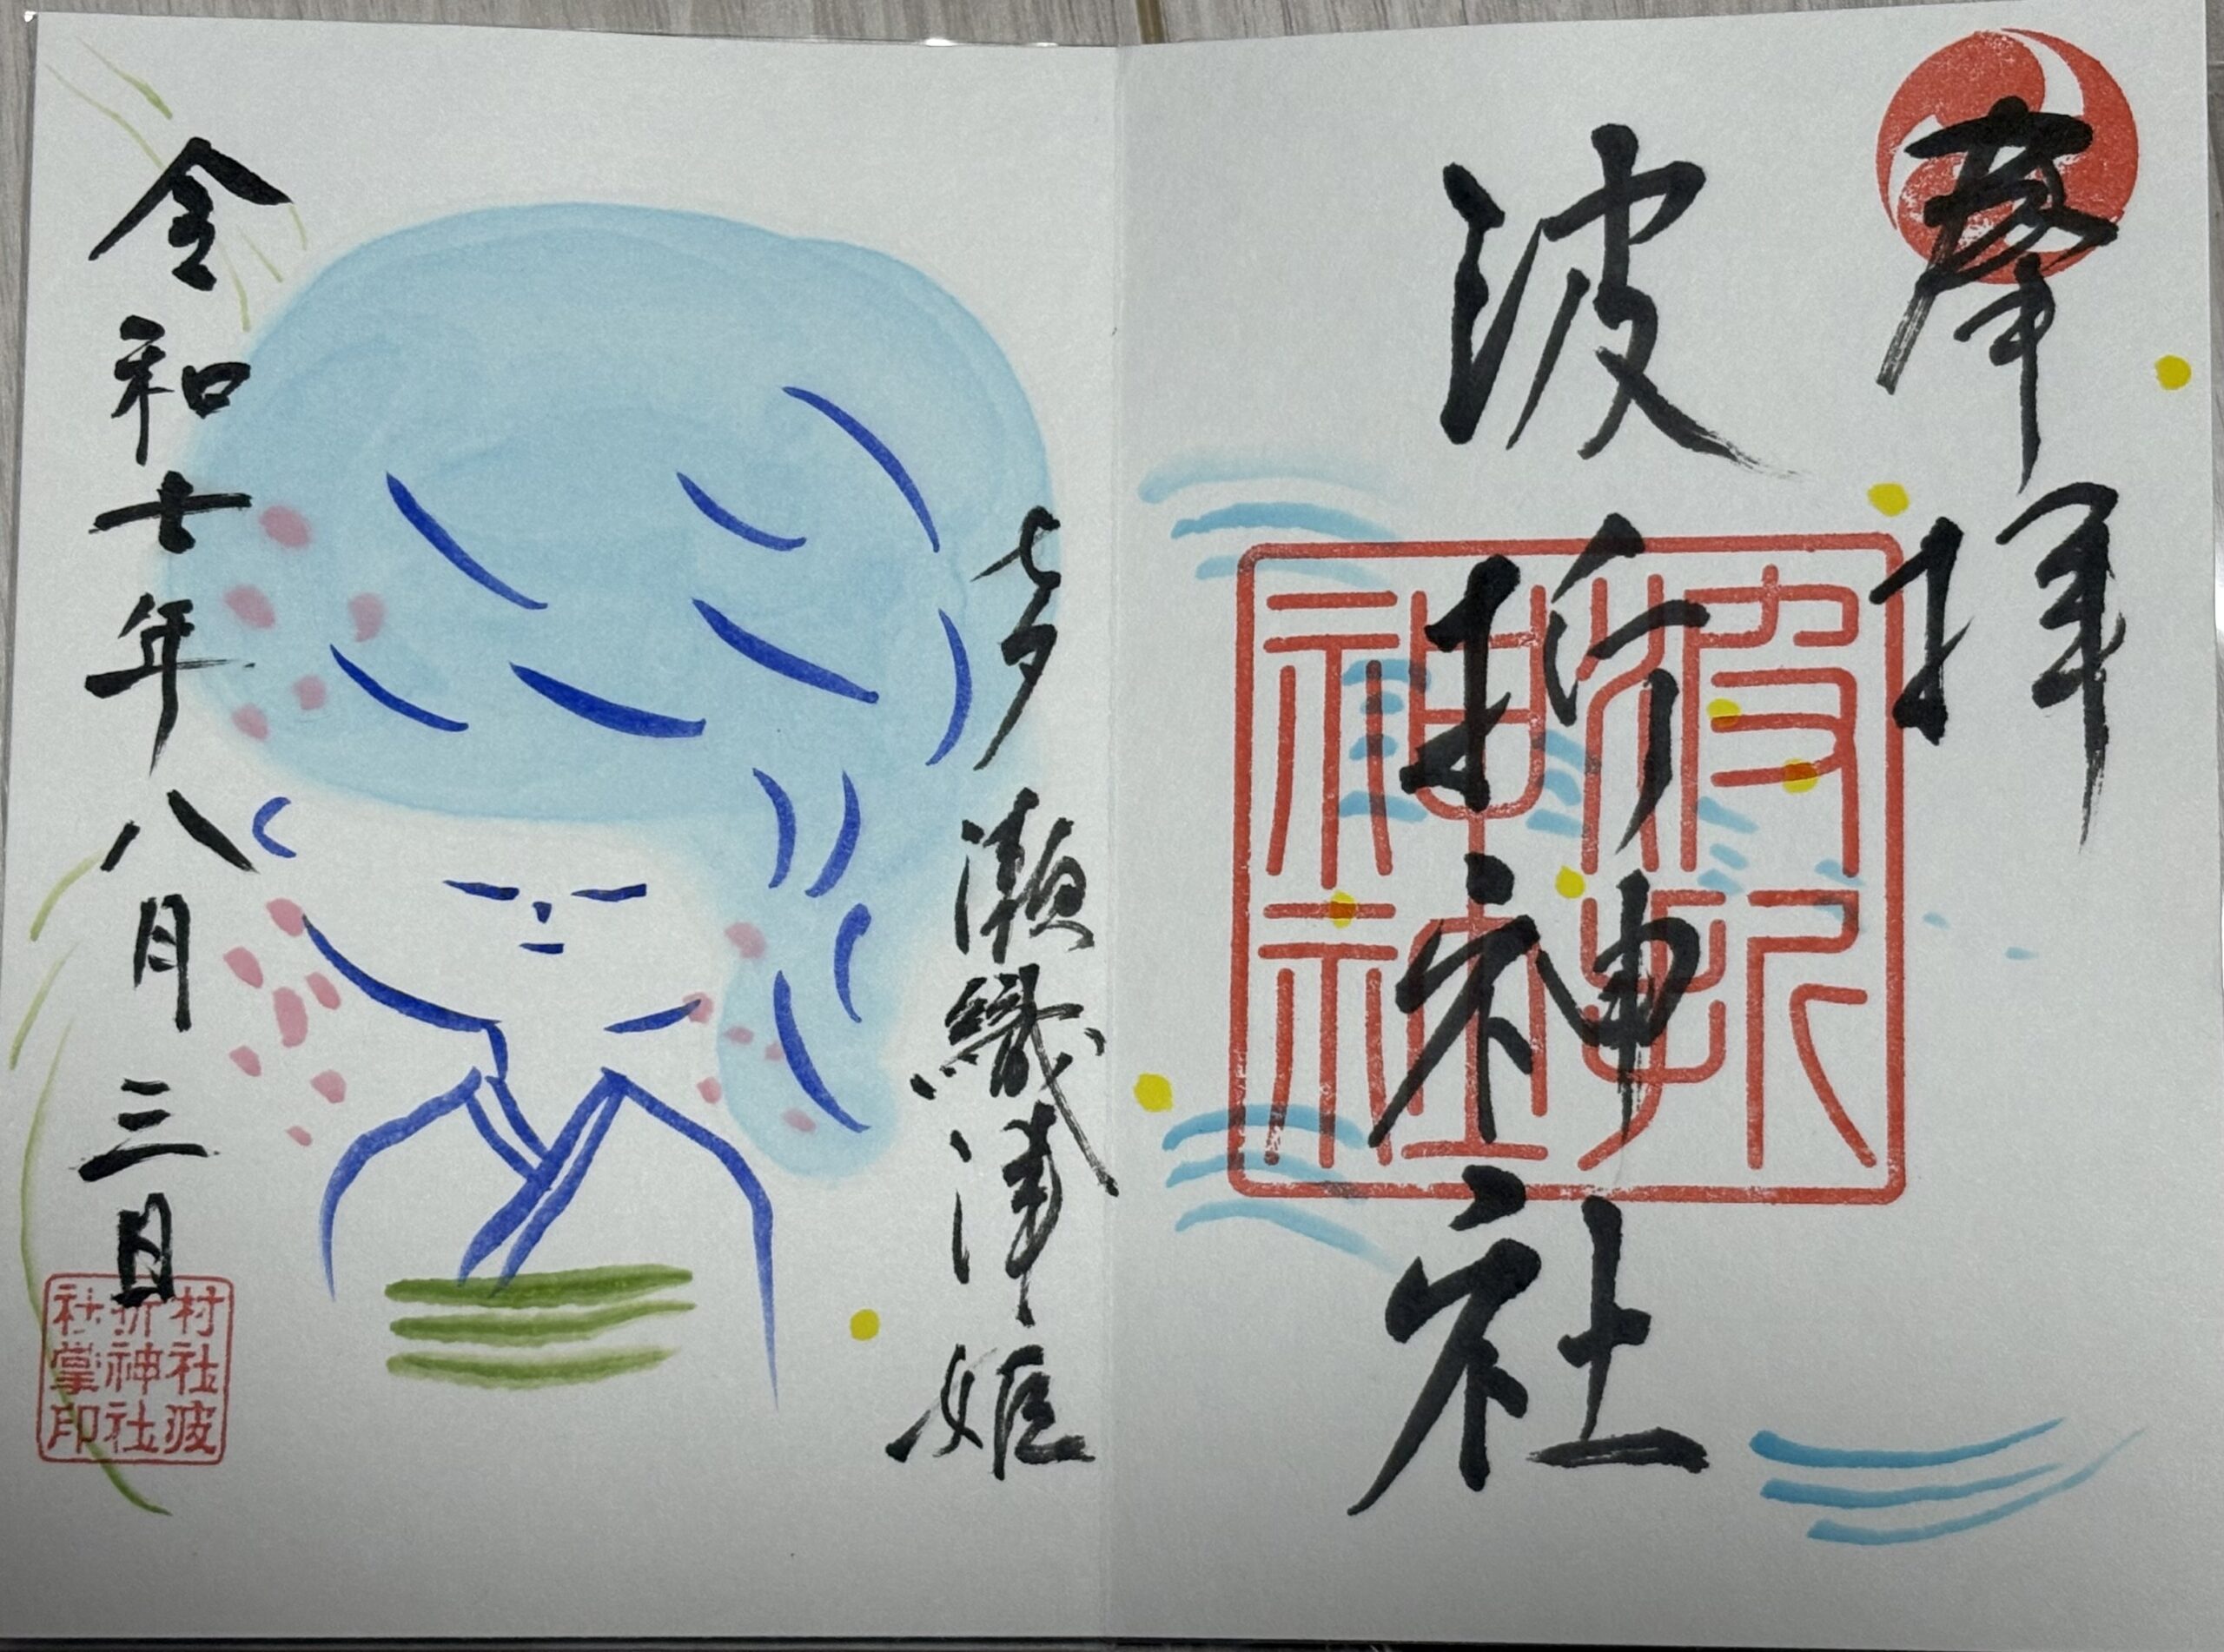 奉拝
波折神社
波折神社
七夕
瀬織津姫
令和七年八月三日
村社波
折神社
社掌印